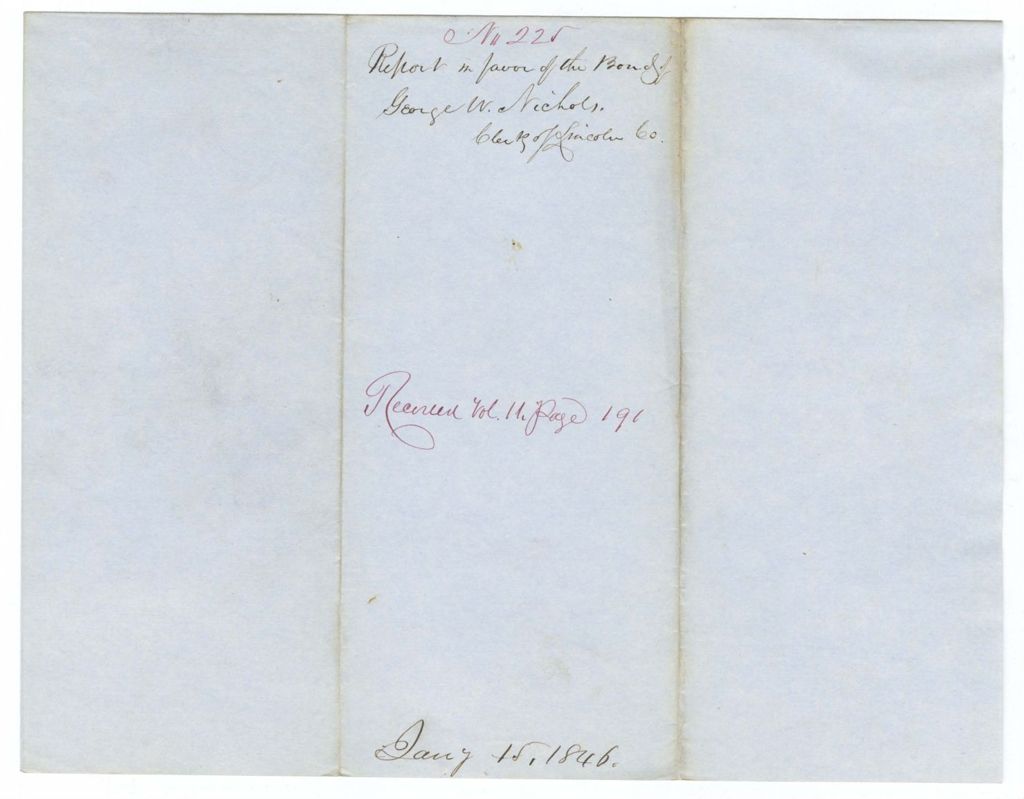 No 225
Report in favor of the Bond of
George W. Nichols.
Clerk of Lincoln Co.
Recorded Vol. 11. Page 191
Jany 15, 1846.